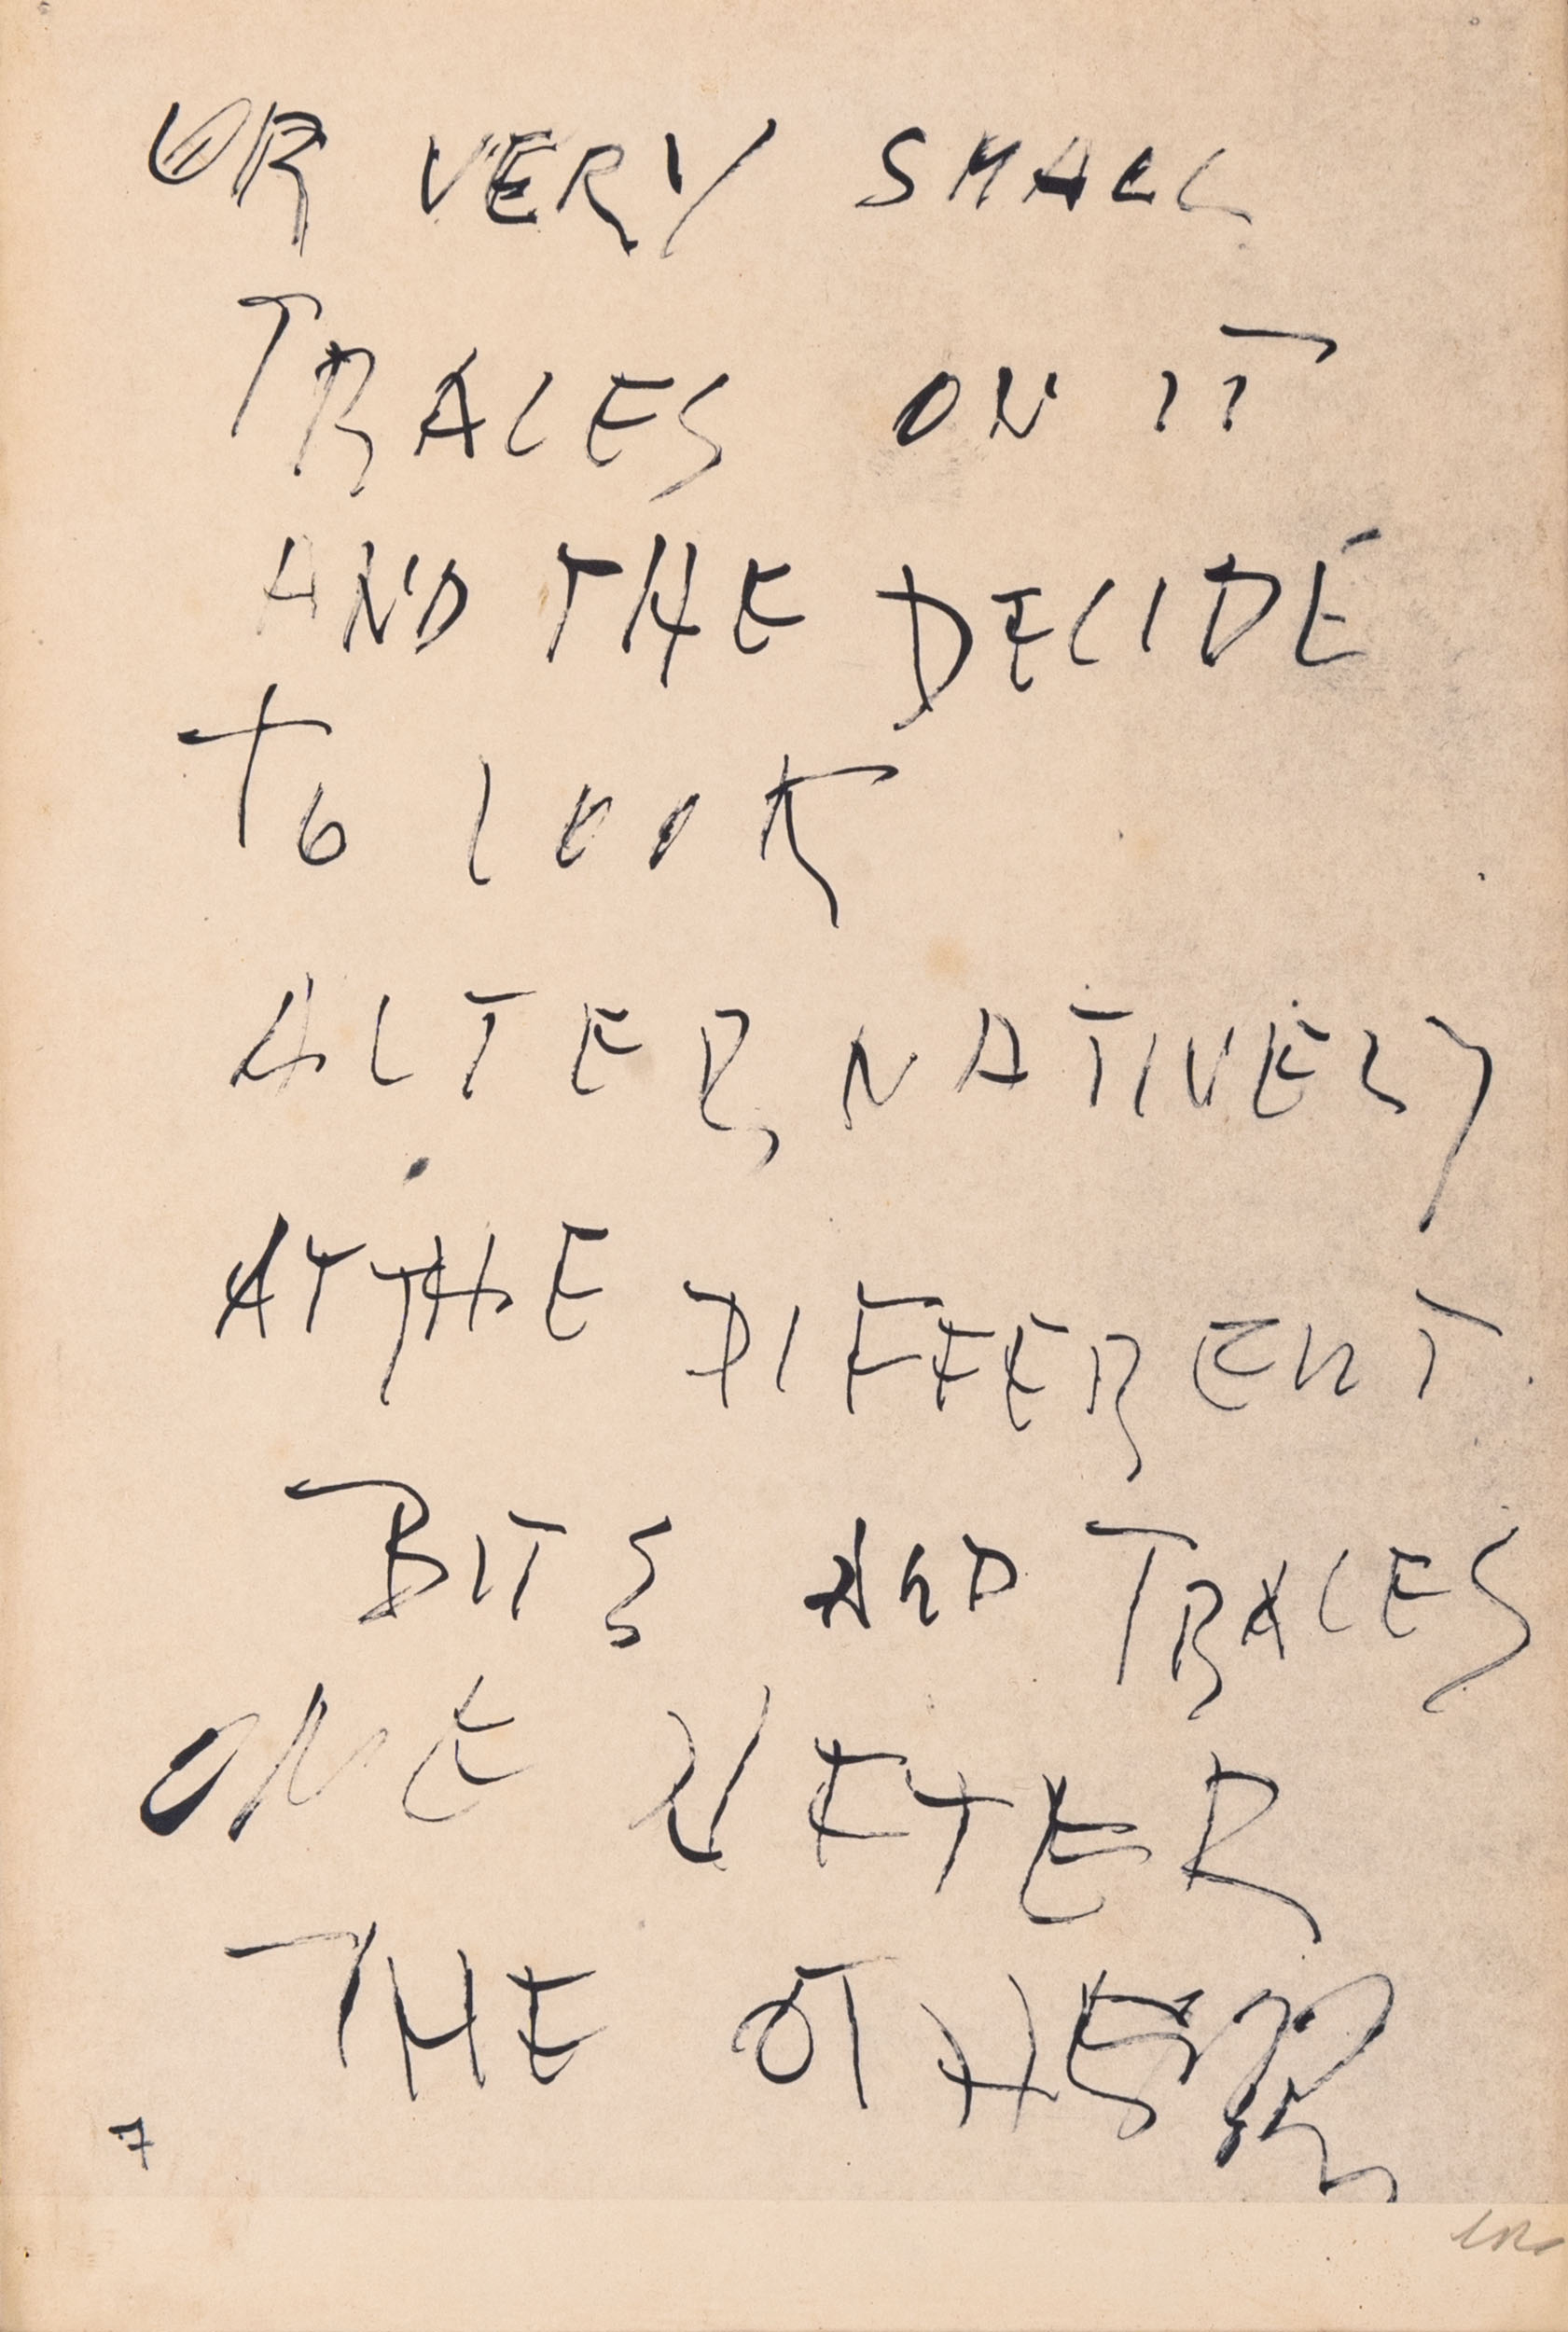 OR VERY SMALL
TRACES ON IT
AND THE DECIDE
TO LOOK
ALTERNATIVELY
AT THE DIFFERENT
BITS AND TRACES
ONE
THE OTHER
7